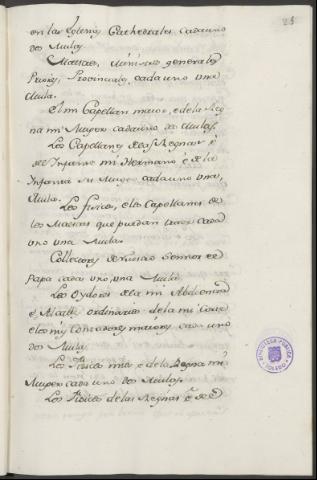 25
en las Iglesias Cathedrales cada uno
dos Mulas.
Maestres, Ministros generales
Priores, Provinciales, cada uno una
Mula.
El mi Capellan maior, e de la Reg
na mi Muger cada uno dos Mulas.
Los Capellanes de las Reynas é
del Infante mi Hermano é de la
Infanta su Muger cada uno una,
Mula.
Los fisicos, e los Capellanes de
los Maestres que puedan traer cada
uno una Mula.
Collectores de nuestro Sennor el
Papa cada uno, una Mula.
Los Oydores de la mi Abdiencia
é Alcalles ordinarios de la mi Corte
e los mis Contadores maiores cada uno
dos Mulas.
Los Fisicos mios e de la Regna mi
Muger cada uno dos Mulas.
Los Fisicos de las Regnas é del
BIBLIOTECA PUBLICA TOLEDO